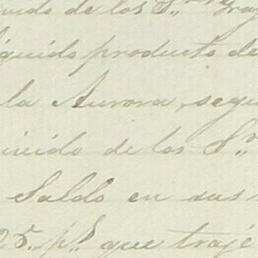 de los S.res
líquido producto de
la Aurora, segu
de los S.r
Saldo en sus
25. p.s que traje